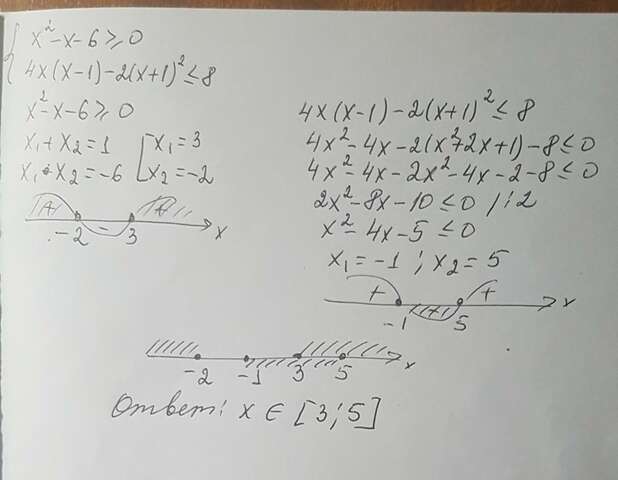 x²-x-6≥0
4x(x-1)-2(x+1)²≤8
x²-x-6≥0
x₁+x₂=1
x₁•x₂=-6
x₁=3
x₂=-2
+ - +
-2 3 x
4x(x-1)-2(x+1)²≤8
4x²-4x-2(x²+2x+1)-8≤0
4x²-4x-2x²-4x-2-8≤0
2x²-8x-10≤0 /:2
x²-4x-5≤0
x₁=-1; x₂=5
+ +
-1 5 x
-2 -1 3 5 x
Ответ: x ∈ [3;5]